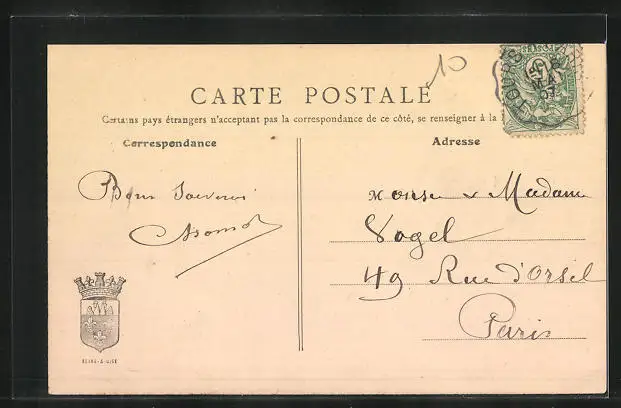 10
CARTE POSTALE
Certains pays étrangers n'acceptant pas la correspondance de ce côté, se renseigner à la
Correspondance
Adresse
Bon Souvenir
Monsr & Madame
Vogel
49 Rue d'Orsel
Paris
TOURS
07